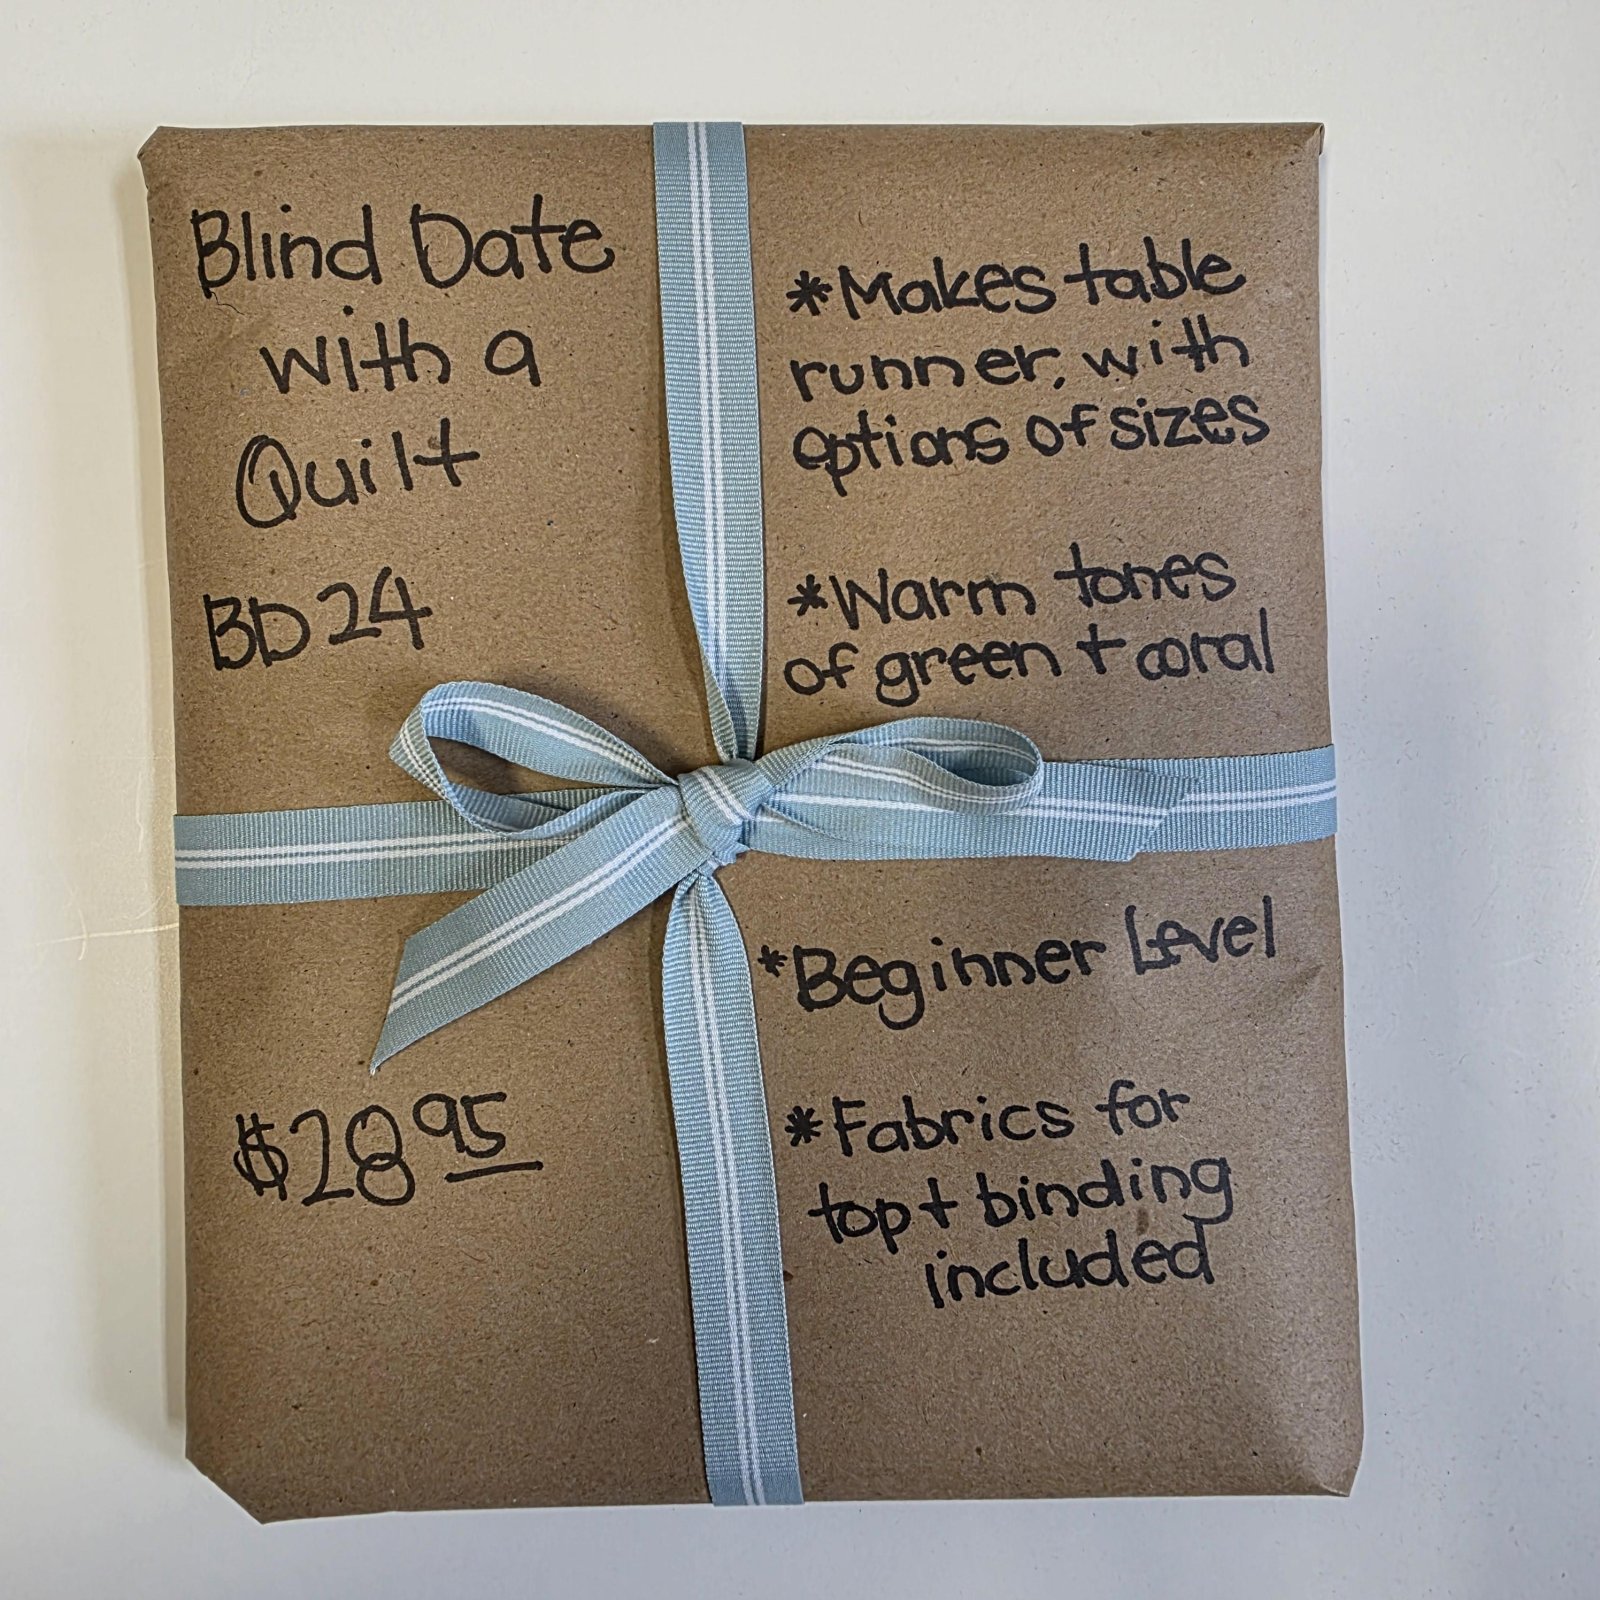 Blind Date
with a
Quilt
BD24
$28.95
*Makes table
runner, with
options of sizes
*Warm tones
of green + coral
*Beginner Level
*Fabrics for
top + binding
included